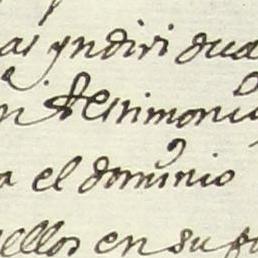 as yndividua
n testimonio
a el dominio
ellos en su po